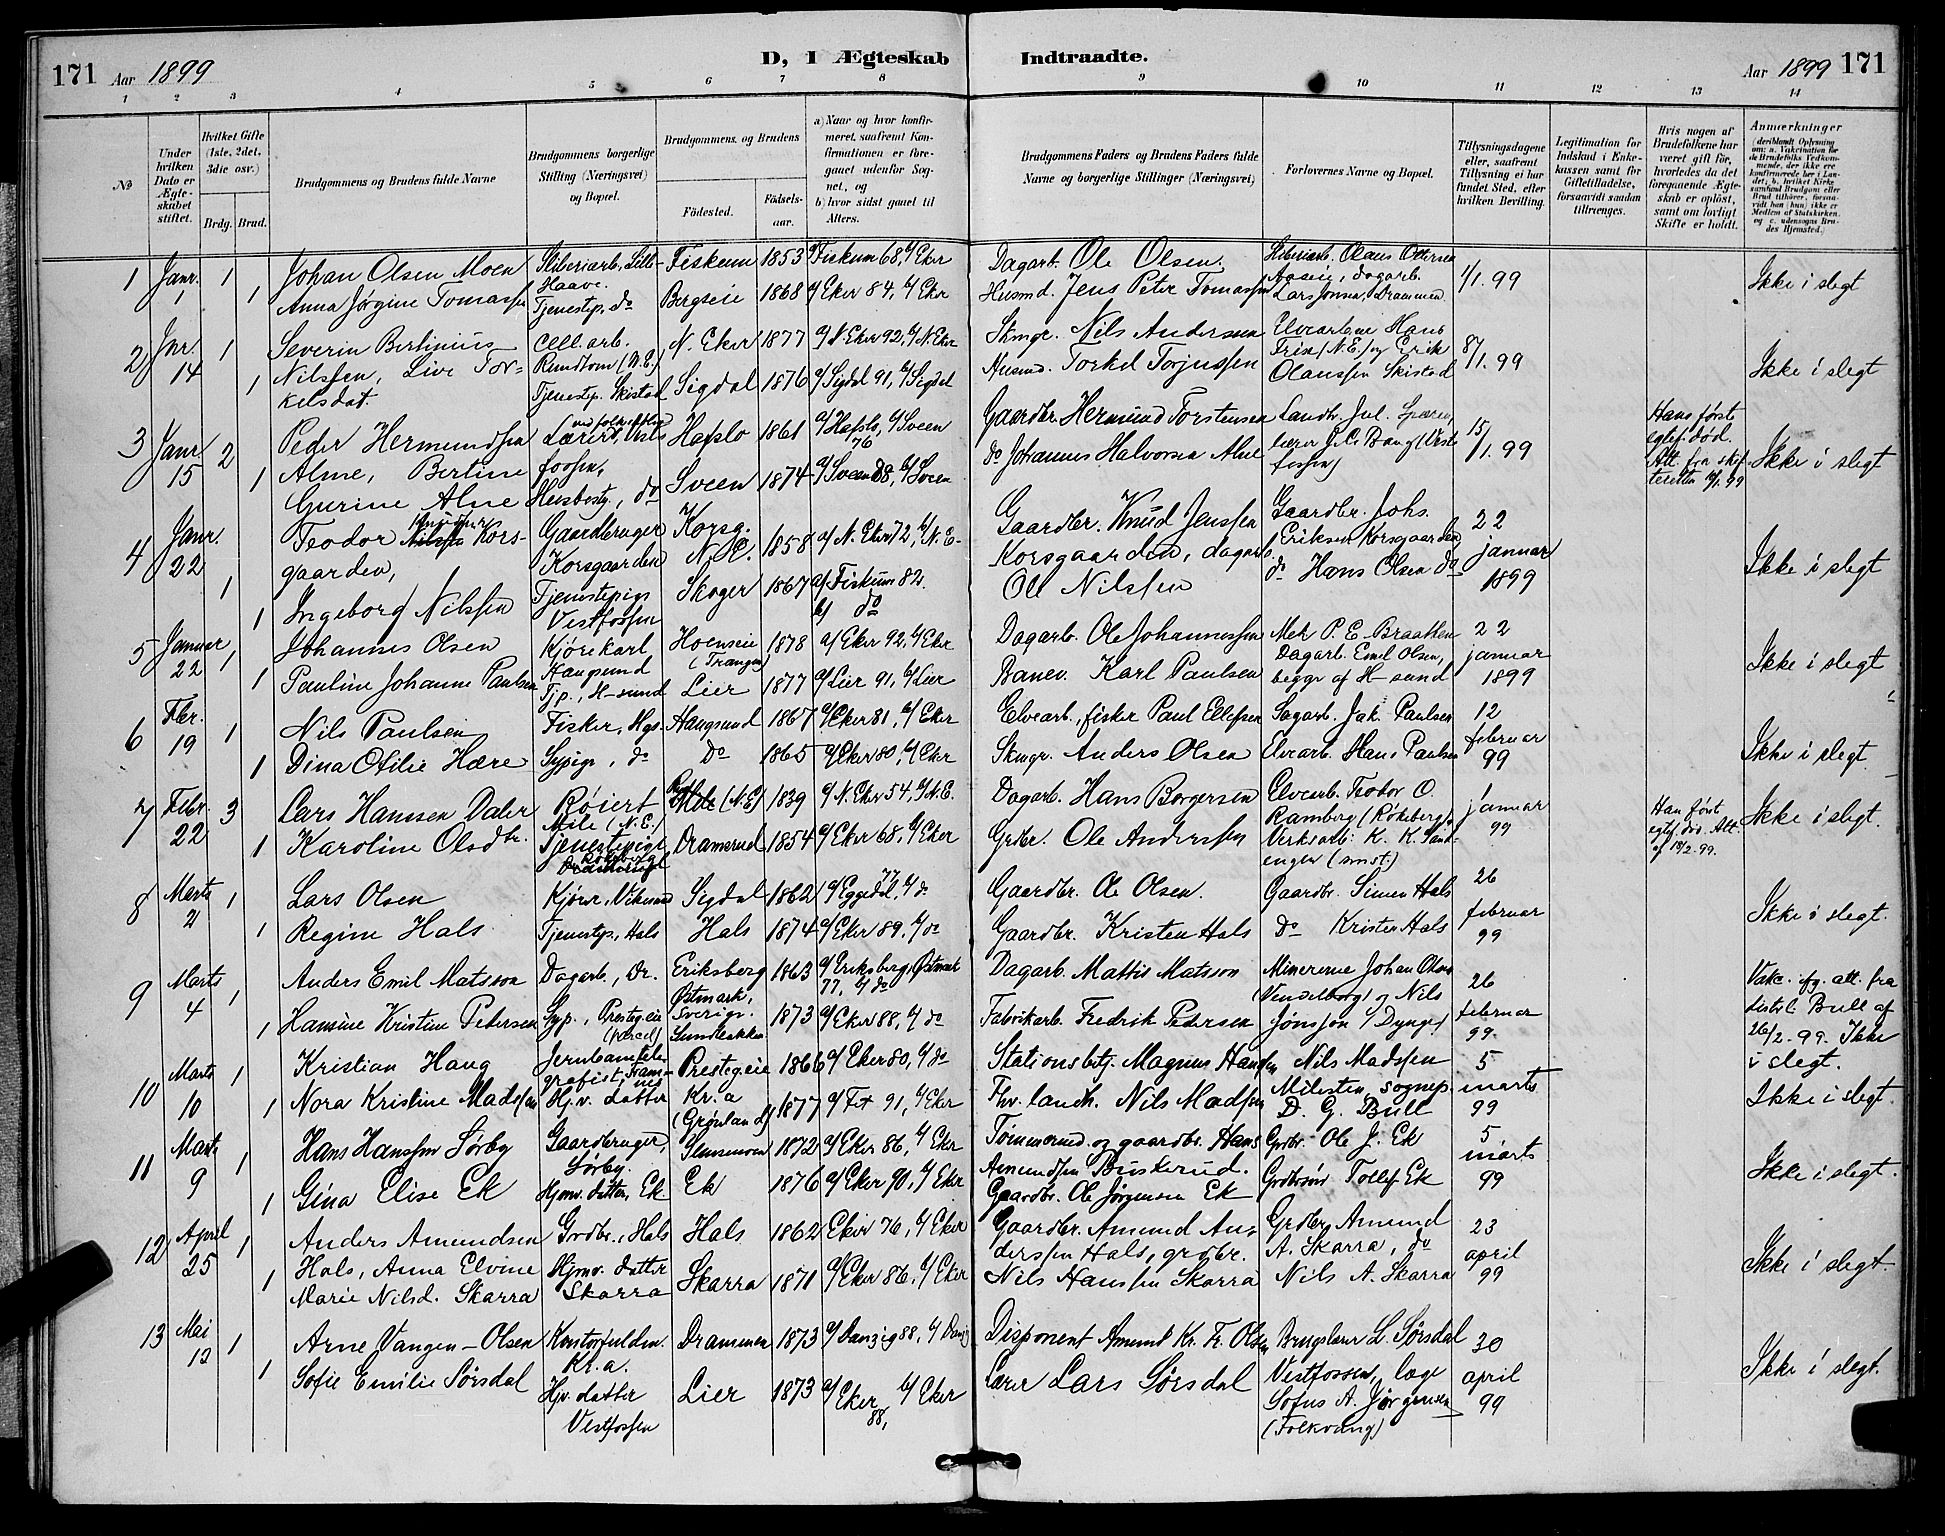 171 Aar 1899 D, 1 Ægteskab Indtraadte. Aar 1899 171
1 2 3 4 5 6 7 8 9 10 11 12 13 14
No
Under hvilken Dato er Ægteskabet stiftet.
Hvilket Gifte (1ste, 2det, 3die osv.)
Brdg. Brud.
Brudgommens og Brudens fulde Navne
Brudgommens borgerlige Stilling (Næringsvei) og Bopæl.
Brudgommens og Brudens
Fødested. Fødselsaar.
a) Naar og hvor konfirmeret, saafremt Konfirmationen er foregaaet udenfor Sognet, og
b) hvor sidst gaaet til Alters.
Brudgommens Faders og Brudens Faders fulde Navne og borgerlige Stillinger (Næringsvei)
Forlovernes Navne og Bopæl.
Tillysningsdagene eller, saafremt Tillysning ei har fundet Sted, efter hvilken Bevilling.
Legitimation for Indskud i Enkekassen samt for Giftetilladelse, forsaavidt saadan tiltrænges.
Hvis nogen af Brudefolkene har været gift før, hvorledes da det foregaaende Ægteskab er opløst, samt om lovligt Skifte er holdt.
Anmærkninger (deriblandt Oplysning om: a. Vakcination for de Brudefolks Vedkommende, der ikke ere konfirmerede her i Landet; b. hvilket Kirkesamfund Brudgom eller Brud tilhører, forsaavidt han (hun) ikke er Medlem af Statskirken, og c. udensogns Brudes Hjemsted.)
1 Janr. 1 1 Johan Olsen Moen Sliberiarb. Lille-Haave. Fiskum 1853 a/ Fiskum 68, b/ Eker Dagarb. Ole Olsen Sliberiarb. Olaus Ottersen 1/1. 99 Ikke i slegt
1 Anna Jørgine Tomassen Tjenestep. do Bergseie 1868 a/ Eker 84, b/ Eker Husmd. Jens Peter Tomassen Aaseie, dagarb. Lars Jonsen, Drammen
2 Jnr. 14 1 Severin Bertinius Cell.arb. N. Eker 1877 a/ N. Eker 92, b/ N. Eker Skmgr. Nils Andersen Elvearbene Hans 8/1. 99 Ikke i slegt
1 Nilssen, Live Torkelsdat. Rundtom (N.E.) Tjenestep. Skistad Sigdal 1876 a/ Sigdal 91, b/ Sigdal Husmd. Torkel Torjussen Frise (N.E.) og Erik Olaussen Skistad
3 Janr. 15 2 Peder Hermundsen Lærer, Vestfossen, Hafslo 1861 a/ Hafslo, b/ Sveen 76 Gaardbr. Hermund Torstensen Landbr. Jul. 15/1. 99 Hans først egtef. død. Att. fra skifteretten Ikke i slegt
1 Alme, Bertine Gurine Alne do Sveen 1874 a/ Sveen 88, b/ Sveen do Johannes Halvorsen Alne lærer J. C. Bang (Vestfossen)
4 Janr. 22 1 Teodor Knudsen Korsgaarden, Gaardbruger Korsgaarden Korsg. N. E. 1858 a/ N. Eker 72, b/ N. E. Gaardbr. Knud Jenssen Korsgaarden, dagarb. Gaardbr. Johs. Eriksen Korsgaarden 22 januar 1899 Ikke i slegt
1 Ingeborg Nilssen Tjenestepige Vestfossen Skoger 1867 a/ Fiskum 82. b/ do Ole Nilssen do Hans Olsen do
5 Januar 22 1 Johannes Olsen Kjørekarl Haugsund Hoenseie (Trangen) 1878 a/ Eker 92, b/ Eker Dagarb. Ole Johannessen Mek P. E. Braathen 22 januar 1899 Ikke i slegt
1 Pauline Johanne Paulsen Tjp., H-sund Lier 1877 a/ Lier 91, b/ Lier Banev. Karl Paulsen Dagarb. Emil Olsen, begge af H-sund
6 Fbr. 19 1 Nils Paulsen Fisker, Hgs. Haugsund 1867 a/ Eker 81, b/ Eker Elvearb., fisker Paul Ellefsen Sagarb. Jak. Paulsen 12 februar 99 Ikke i slegt
1 Dina Otilie Hære Sypige, do Do 1865 a/ Eker 80, b/ Eker Skmgr. Anders Olsen Elvearb. Hans Paulsen
7 Febr. 22 3 Lars Hansen Daler Røiert Mile (N.E.) Mile (N.E) 1839 a/ N. Eker 54, b/ N.E. Dagarb. Hans Borgersen Elvearb. Teodor O. Ramberg (Røkeberg) 1 januar 99 Han først egtef. død. Att. af 18/2. 99. Ikke i slegt
1 Karoline Olsdtr. Tjenestepige Dramerud 1854 a/ Eker 68, b/ Eker Grbr. Ole Anderssen Verksarb. K. K. (smst.)
8 Marts 2 1 Lars Olsen Kjører, Viksund Sigdal 1862 a/ Eggedal, 77 b/ do Gaardbr. Ole Olsen. Gaardbr. Simen Hals 26 februar 99 Ikke i slegt.
1 Regine Hals Tjenestep., Hals Hals 1874 a/ Eker 89. b/ do Gaardbr. Kristen Hals Do Kristen Hals
9 Marts 4 1 Anders Emil Matsson Dagarb., Dr. Eriksberg Østmark, Sverige. 1863 a/ Eriksberg, Østmark 77, b/ do Dagarb. Mattis Matsson Minererne Johan Olsen (Vendelborg) og Nils 26 februar 99. Vakc. ifg. att. fra distrl. Bull af 26/2. 99. Ikke i slegt.
1 Hansine Kristine Petersen Syp., Prestegeie Sundbakken 1873 a/ Eker 88, b/ do Fabrikarb. Fredrik Pedersen Jonsson (Dynge)
10 Marts 10 1 Kristian Haug Jernbanetelegrafist, Prestegeie 1866 a/ Eker 80, b/ do Stationsbetj. Magnus Hanssen Nils Madssen 5 marts 99 Ikke i slegt.
1 Nora Kristine Madssen Hj.v. datter Kr.a (Grønland) 1877 a/ Fet 91, b/ Eker Fhv. landh. Nils Madssen Milesten, sognep. D. G. Bull
11 Marts 9 1 Hans Hanssen Sørby Gaardbruger, Sørby. 1872 a/ Eker 86, b/ Eker Tømmermd. og gaardbr. Hans Amundsen Buskerud. Grdbr. Ole J. Ek 5 marts 99 Ikke i slegt.
1 Gina Elise Ek Hjmv. datter, Ek Ek 1876 a/ Eker 90, b/ Eker Gaardbr. Ole Jørgensen Ek Grdbrsøn Tollef Ek
12 April 25 1 Anders Amundsen Grdbr., Hals Hals 1862 Eker 76, b/ Eker Gaardbr. Amund Anderssen Hals, grdbr. Grdbr. Amund A. Skarra, do 23 april 99 Ikke i slegt.
1 Hals, Anna Elvine Marie Nilsd. Skarra Hjmv. datter Skarra Skarra 1871 a/ Eker 86, b/ Eker Nils Hanssen Skarra Nils A. Skarra
13 Mai 12 1 Arne Vangen-Olsen Kontorfuldm. Kr.a. Drammen 1873 a/ Danzig 88, b/ Danzig Disponent Amund Kr. Fr. Olsen Brugslærer L. Sørsdal 30 april 99 Ikke i slegt.
1 Sofie Emilie Sørsdal Hjv. datter Vestfossen Lier 1873 a/ Eker 88, b/ Eker Lærer Lars Sørsdal Vestfossen, læge Sofus A. Jørgensen (Folkvang)